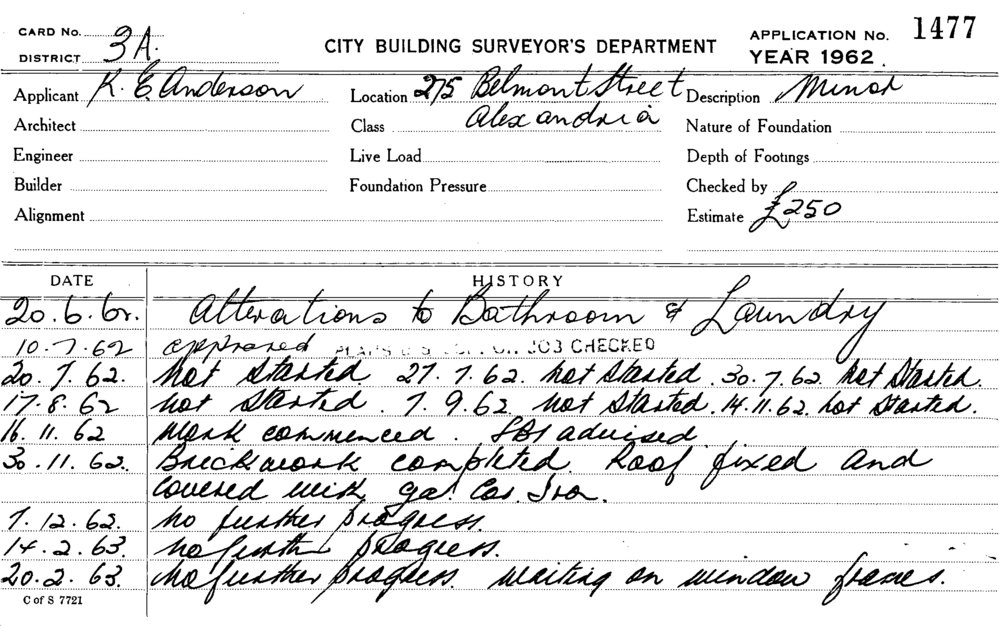 CARD No.
DISTRICT 3A.
CITY BUILDING SURVEYOR'S DEPARTMENT
APPLICATION No. 1477
YEAR 1962.
Applicant K. E. Anderson
Location 275 Belmont Street
Alexandria
Description Minor
Architect
Class
Nature of Foundation
Engineer
Live Load
Depth of Footings
Builder
Foundation Pressure
Checked by
Alignment
Estimate £250
DATE HISTORY
20.6.62. Alterations to Bathroom & Laundry
10.7.62 approved PLANS JOB CHECKED
20.7.62. Not Started. 27.7.62. Not Started. 30.7.62. Not Started.
17.8.62 not Started. 7.9.62 Not Started. 14.11.62. Not Started.
16.11.62 Work commenced. advised
30.11.62. Brickwork completed. Roof fixed and
covered with gal. Cor. Iron.
7.12.62. No further progress.
14.2.63. No further progress.
20.2.63. No further progress. Waiting on window frames.
C of S 7721